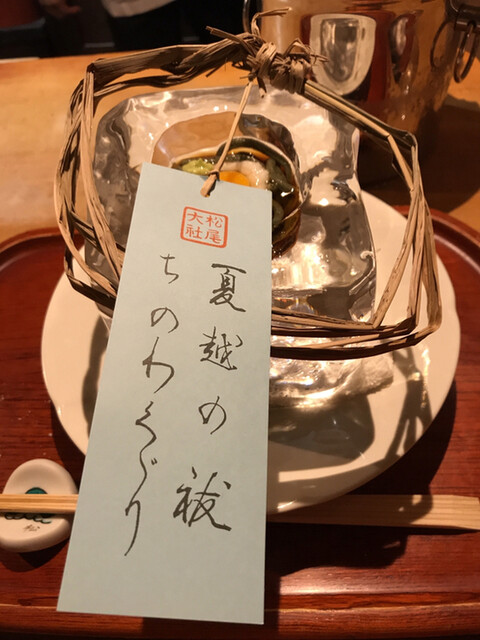 松尾
大社
夏越の祓
ちのわくぐり